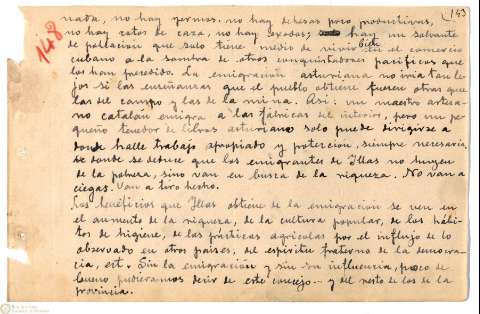 143
148
nada, no hay yermos. no hay dehesas poco productivas,
no hay cotos de caza, no hay exodos; hay un sobrante
de poblacion que solo tiene medio de vivir bien en el comercio
cubano a la sombra de otros conquistadores pacificos que
los han precedido. La emigración asturiana no iria tan le-
jos si las enseñanzas que el pueblo obtiene fuesen otras que
las del campo y las de la mina. Asi: un maestro artesa-
no catalán emigra a las fábricas del interior, pero un pe-
queño tenedor de libros asturiano solo puede dirigirse a
donde halle trabajo apropiado y protección, siempre necesaria,
de donde se deduce que los emigrantes de Illas no huyen
de la pobreza, sino van en busca de la riqueza. No van a
ciegas. Van a tiro hecho.
Los beneficios que Illas obtiene de la emigración se ven en
el aumento de la riqueza, de la cultura popular, de los hábi-
tos de higiene, de las prácticas agricolas por el influjo de lo
observado en otros paises, del espiritu fraterno de la democra-
cia, ect. Sin la emigración y sin su influencia, poco de
bueno pudieramos decir de este concejo... y del resto de los de la
provincia.